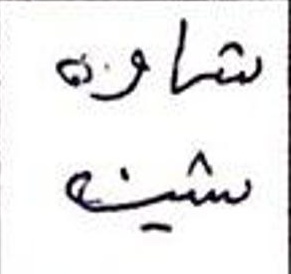 شاوه
شينه